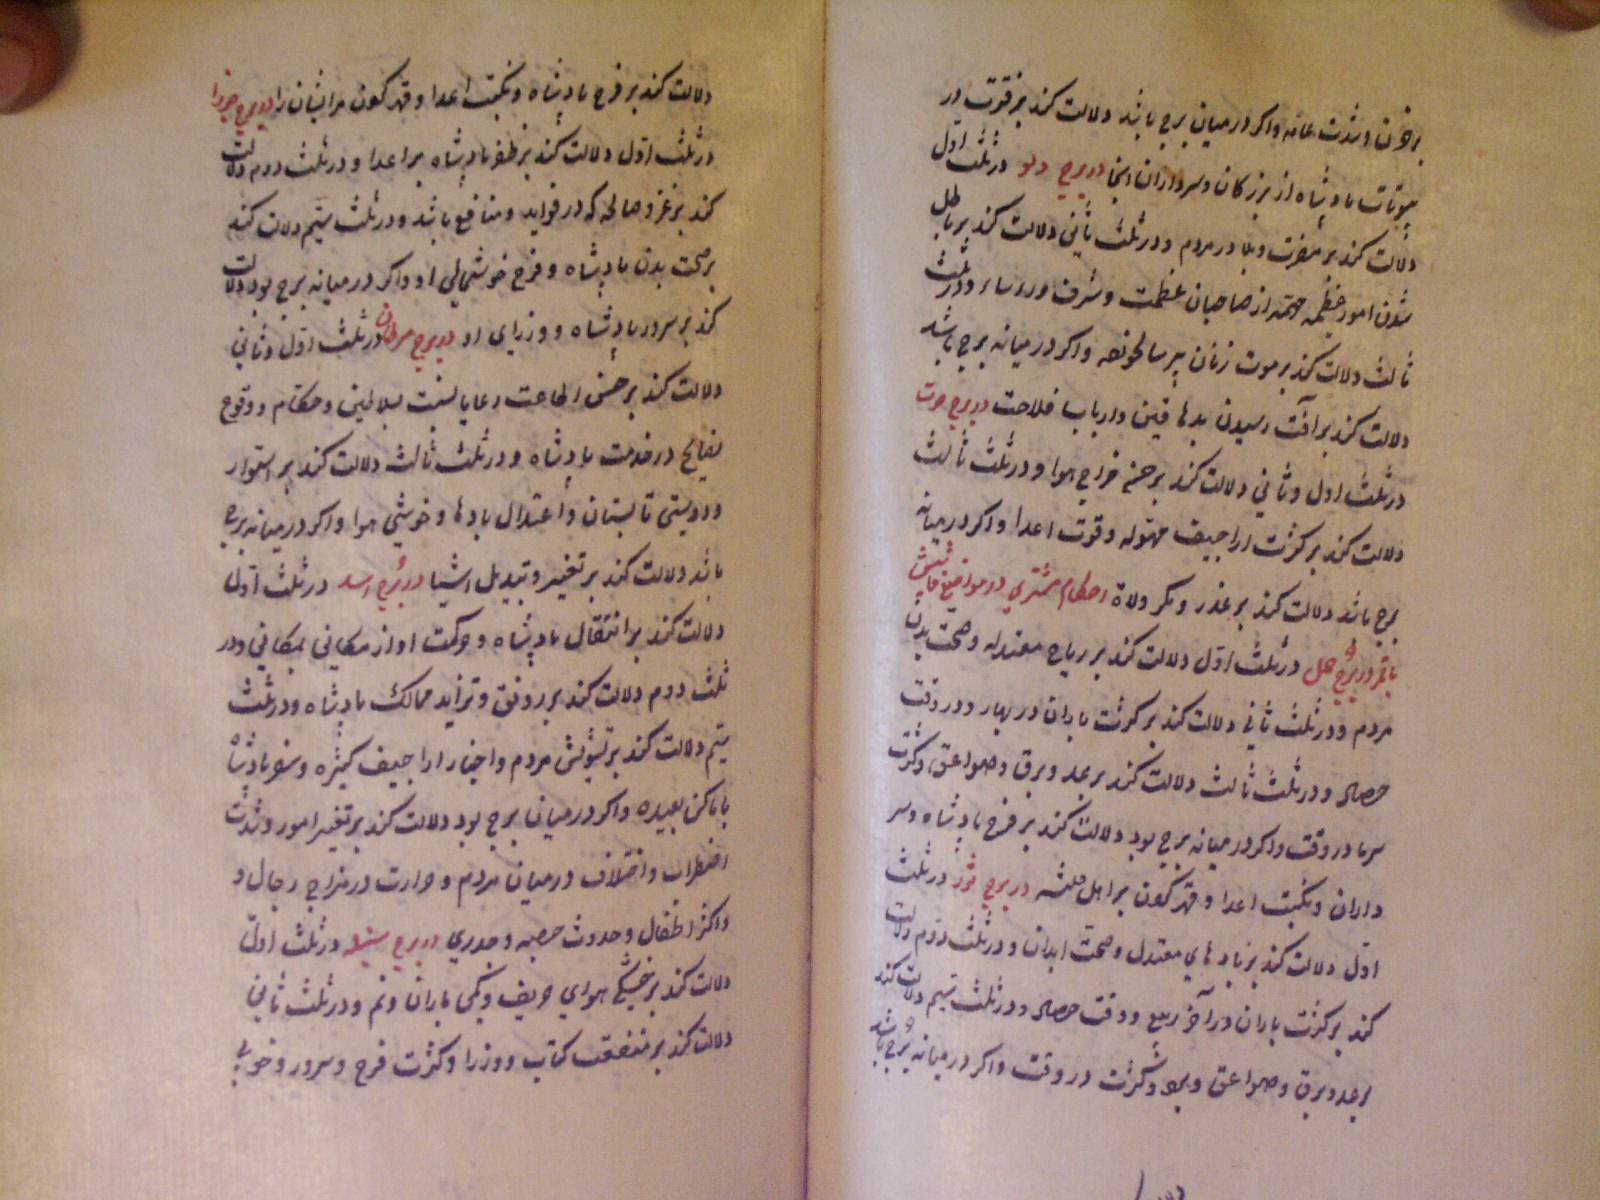 بر خزن و شدت عامه و اکر در میان برج باشد دلالت کند بر قوت در
بیوتات پادشاه از بزرکان و سرداران انجا در برج دلو در ثلث اول
دلالت کند بر مضرت و بلا در مردم و در ثلث ثانی دلالت کند بر باطل
شدن امور عظیمه از صاحبان عظمت و شرف و روسا و در ثلث
ثالث دلالت کند بر موت زنان پیر سالخورده و اکر در میانه برج باشد
دلالت کند بر آفت رسیدن بدهاقین و ارباب فلاحت در برج حوت
در ثلث اول و ثانی دلالت کند بر حسن مزاج هوا و در ثلث ثالث
دلالت کند بر کثرت اراجیف و قوت اعدا و اکر در میانه
برج باشد دلالت کند بر غدر و مکر ولاة احکام مشتری در مواضع خانهایش
با قمر در برج حمل در ثلث اول دلالت کند بر ریاح معتدله و صحت بدن
مردم و در ثلث ثانی دلالت کند بر کثرت باران در بهار و در وقت
حصاد و در ثلث ثالث دلالت کند بر رعد و برق و صواعق و کثرت
سرما در وقت و اکر در میانه برج بود دلالت کند بر فرح پادشاه و سر
داران و نکبت اعدا و قهر کردن بر اهل فتنه در برج ثور در ثلث
اول دلالت کند بر بادهای معتدل و صحت ابدان و در ثلث دوم دلالت
کند بر کثرت باران در آخر ربیع و وقت حصاد و در ثلث سیم دلالت کند
بر رعد و برق و صواعق و کثرت در وقت و اکر در میانه برج باشد
دلالت کند بر فرح پادشاه و نکبت اعدا و قهر کردن مر ایشان را در برج جوزا
در ثلث اول دلالت کند بر ظفر پادشاه بر اعدا و در ثلث دوم دلالت
کند بر غزو صالحه که در فواید و منافع باشد و در ثلث سیم دلالت کند
بر صحت بدن پادشاه و فرح و خوشحالی او و اکر در میانه برج بود دلالت
کند بر سرور پادشاه و وزرای او در برج سرطان در ثلث اول و ثانی
دلالت کند بر حسن اطاعت رعایا بنسبت بسلاطین و حکام و وقوع
نصایح در خدمت پادشاه و در ثلث ثالث دلالت کند بر استمرار
و درستی تابستان و اعتدال بادها و خوشی هوا و اکر در میانه برج
باشد دلالت کند بر تغییر و تبدیل اشیا در برج اسد در ثلث اول
دلالت کند بر انتقال پادشاه و حرکت او از مکانی بمکانی و در
ثلث دوم دلالت کند بر رونق و تزاید ممالک پادشاه و در ثلث
سیم دلالت کند بر تشویش مردم و اخبار اراجیف کثیره و سفر پادشاه
باماکن بعیده و اکر در میان برج بود دلالت کند بر تغییر امور و شدت
اضطراب و اختلاف در میان مردم و حرارت در مزاج رجال و
و اکثر اطفال و حدوث حصبه و جدری در برج سنبله در ثلث اول
دلالت کند بر خشکی هوای خریف و کمی باران و نم و در ثلث ثانی
دلالت کند بر منفعت کتاب و وزرا و کثرت فرح و سرور و خوبی